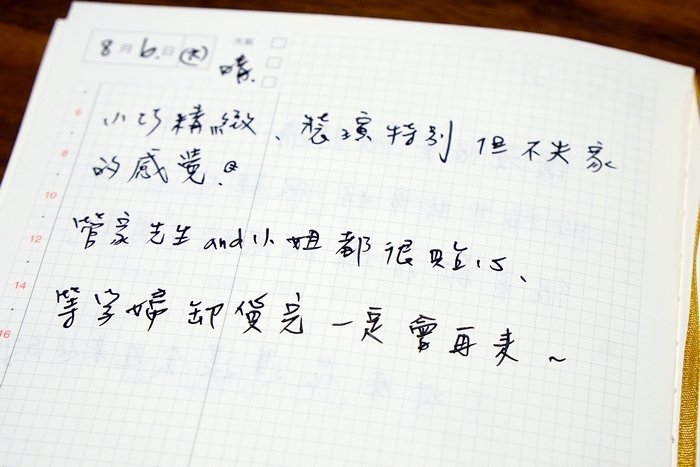 8月6日(水) 晴 天氣
小巧精緻、裝潢特別但不失家
的感覺。
管家先生and小姐都很貼心、
等孕婦卸貨完一定會再來~
6
8
10
12
14
16